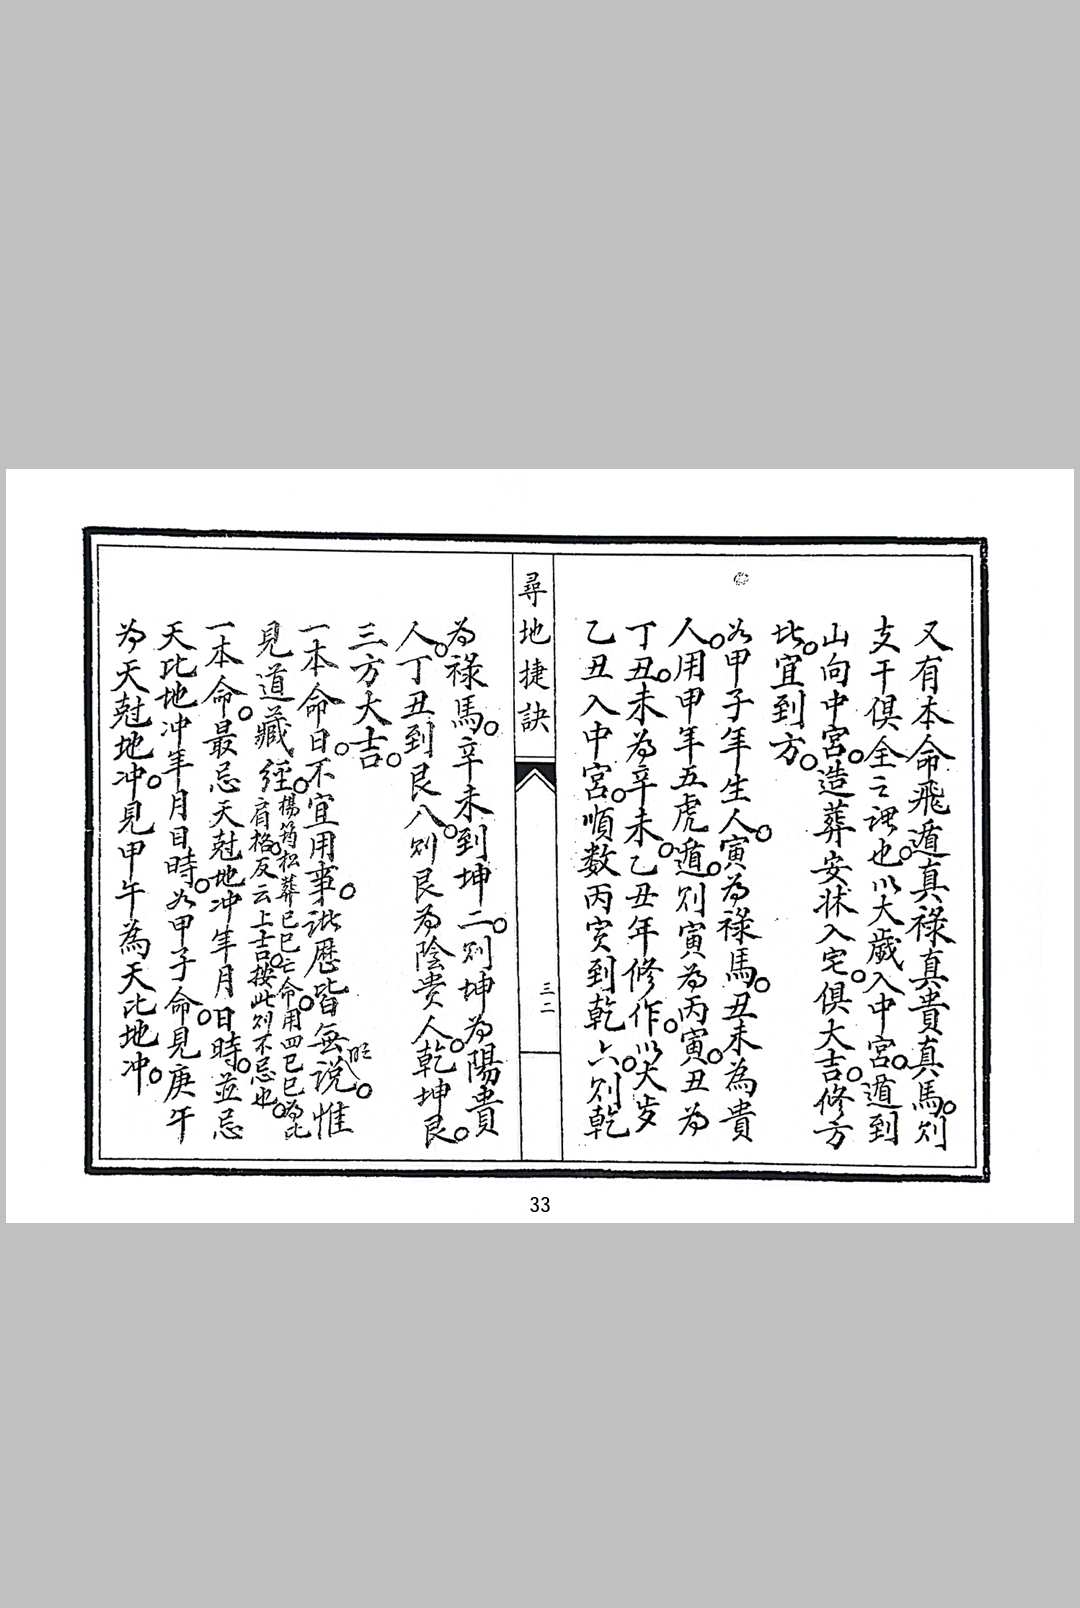 又有本命飛遁真祿真貴真馬則
支干俱全之謂也以太歲入中宮遁到
山向中宮造葬安牀入宅俱大吉修方
此宜到方
如甲子年生人寅為祿馬丑未為貴
人用甲年五虎遁則寅為丙寅丑為
丁丑未為辛未乙丑年修作以太歲
乙丑入中宮順数丙寅到乾六則乾
尋地捷訣
三二
為祿馬辛未到坤二則坤為陽貴
人丁丑到艮八則艮為陰貴人乾坤艮
三方大吉
一本命日不宜用事諸歷皆無說惟
見道藏經
楊筠松葬己巳亡命用四己巳為比
肩格反云上吉按此則不忌也
一本命最忌天尅地冲年月日時並忌
天比地冲年月日時如甲子命見庚午
為天尅地冲見甲午為天比地冲
33